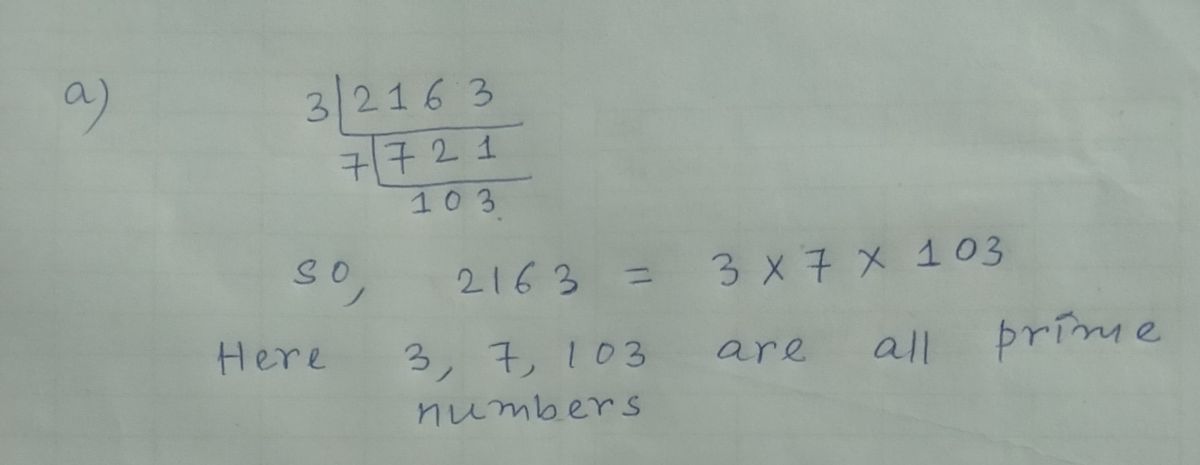 a) 3 2163
7 721
103
so, 2163 = 3 × 7 × 103
Here 3, 7, 103 are all prime
numbers